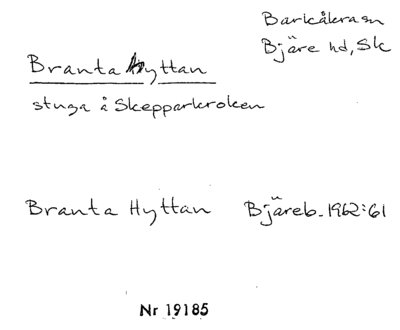 Barkåkra sn
Bjäre hd, Sk
Branta Hyttan
stuga å Skepparkroken
Branta Hyttan Bjäreb. 1962:61
Nr 19185